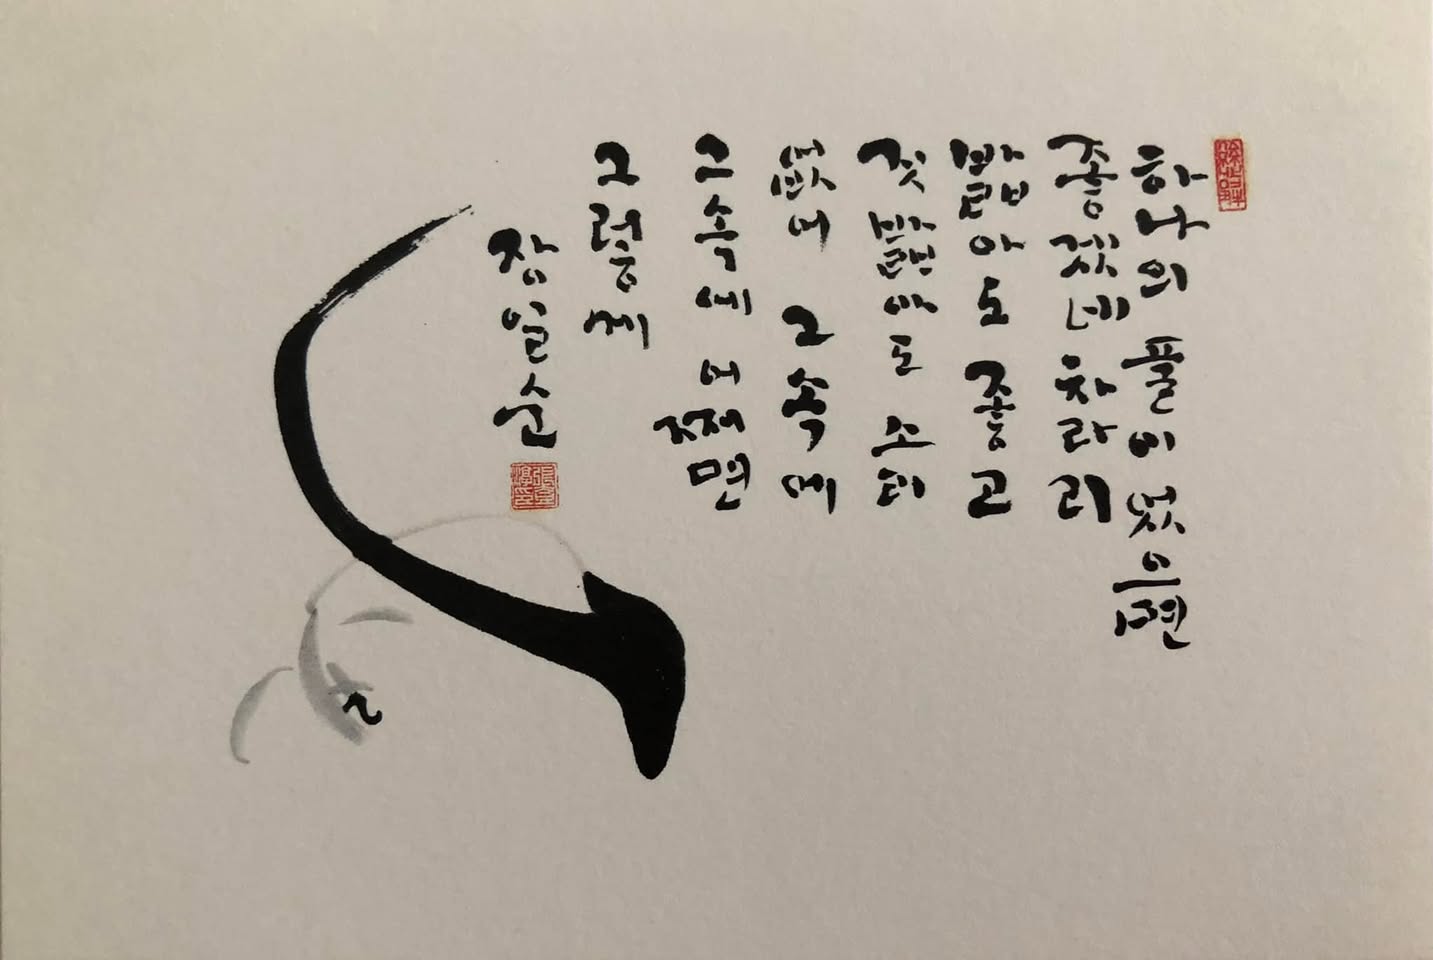 하나의 풀이었으면
좋겠네 차라리
밟아도 좋고
짓밟아도 소리
없어 그 속에
그 속에 어쩌면
그렇게
장일순